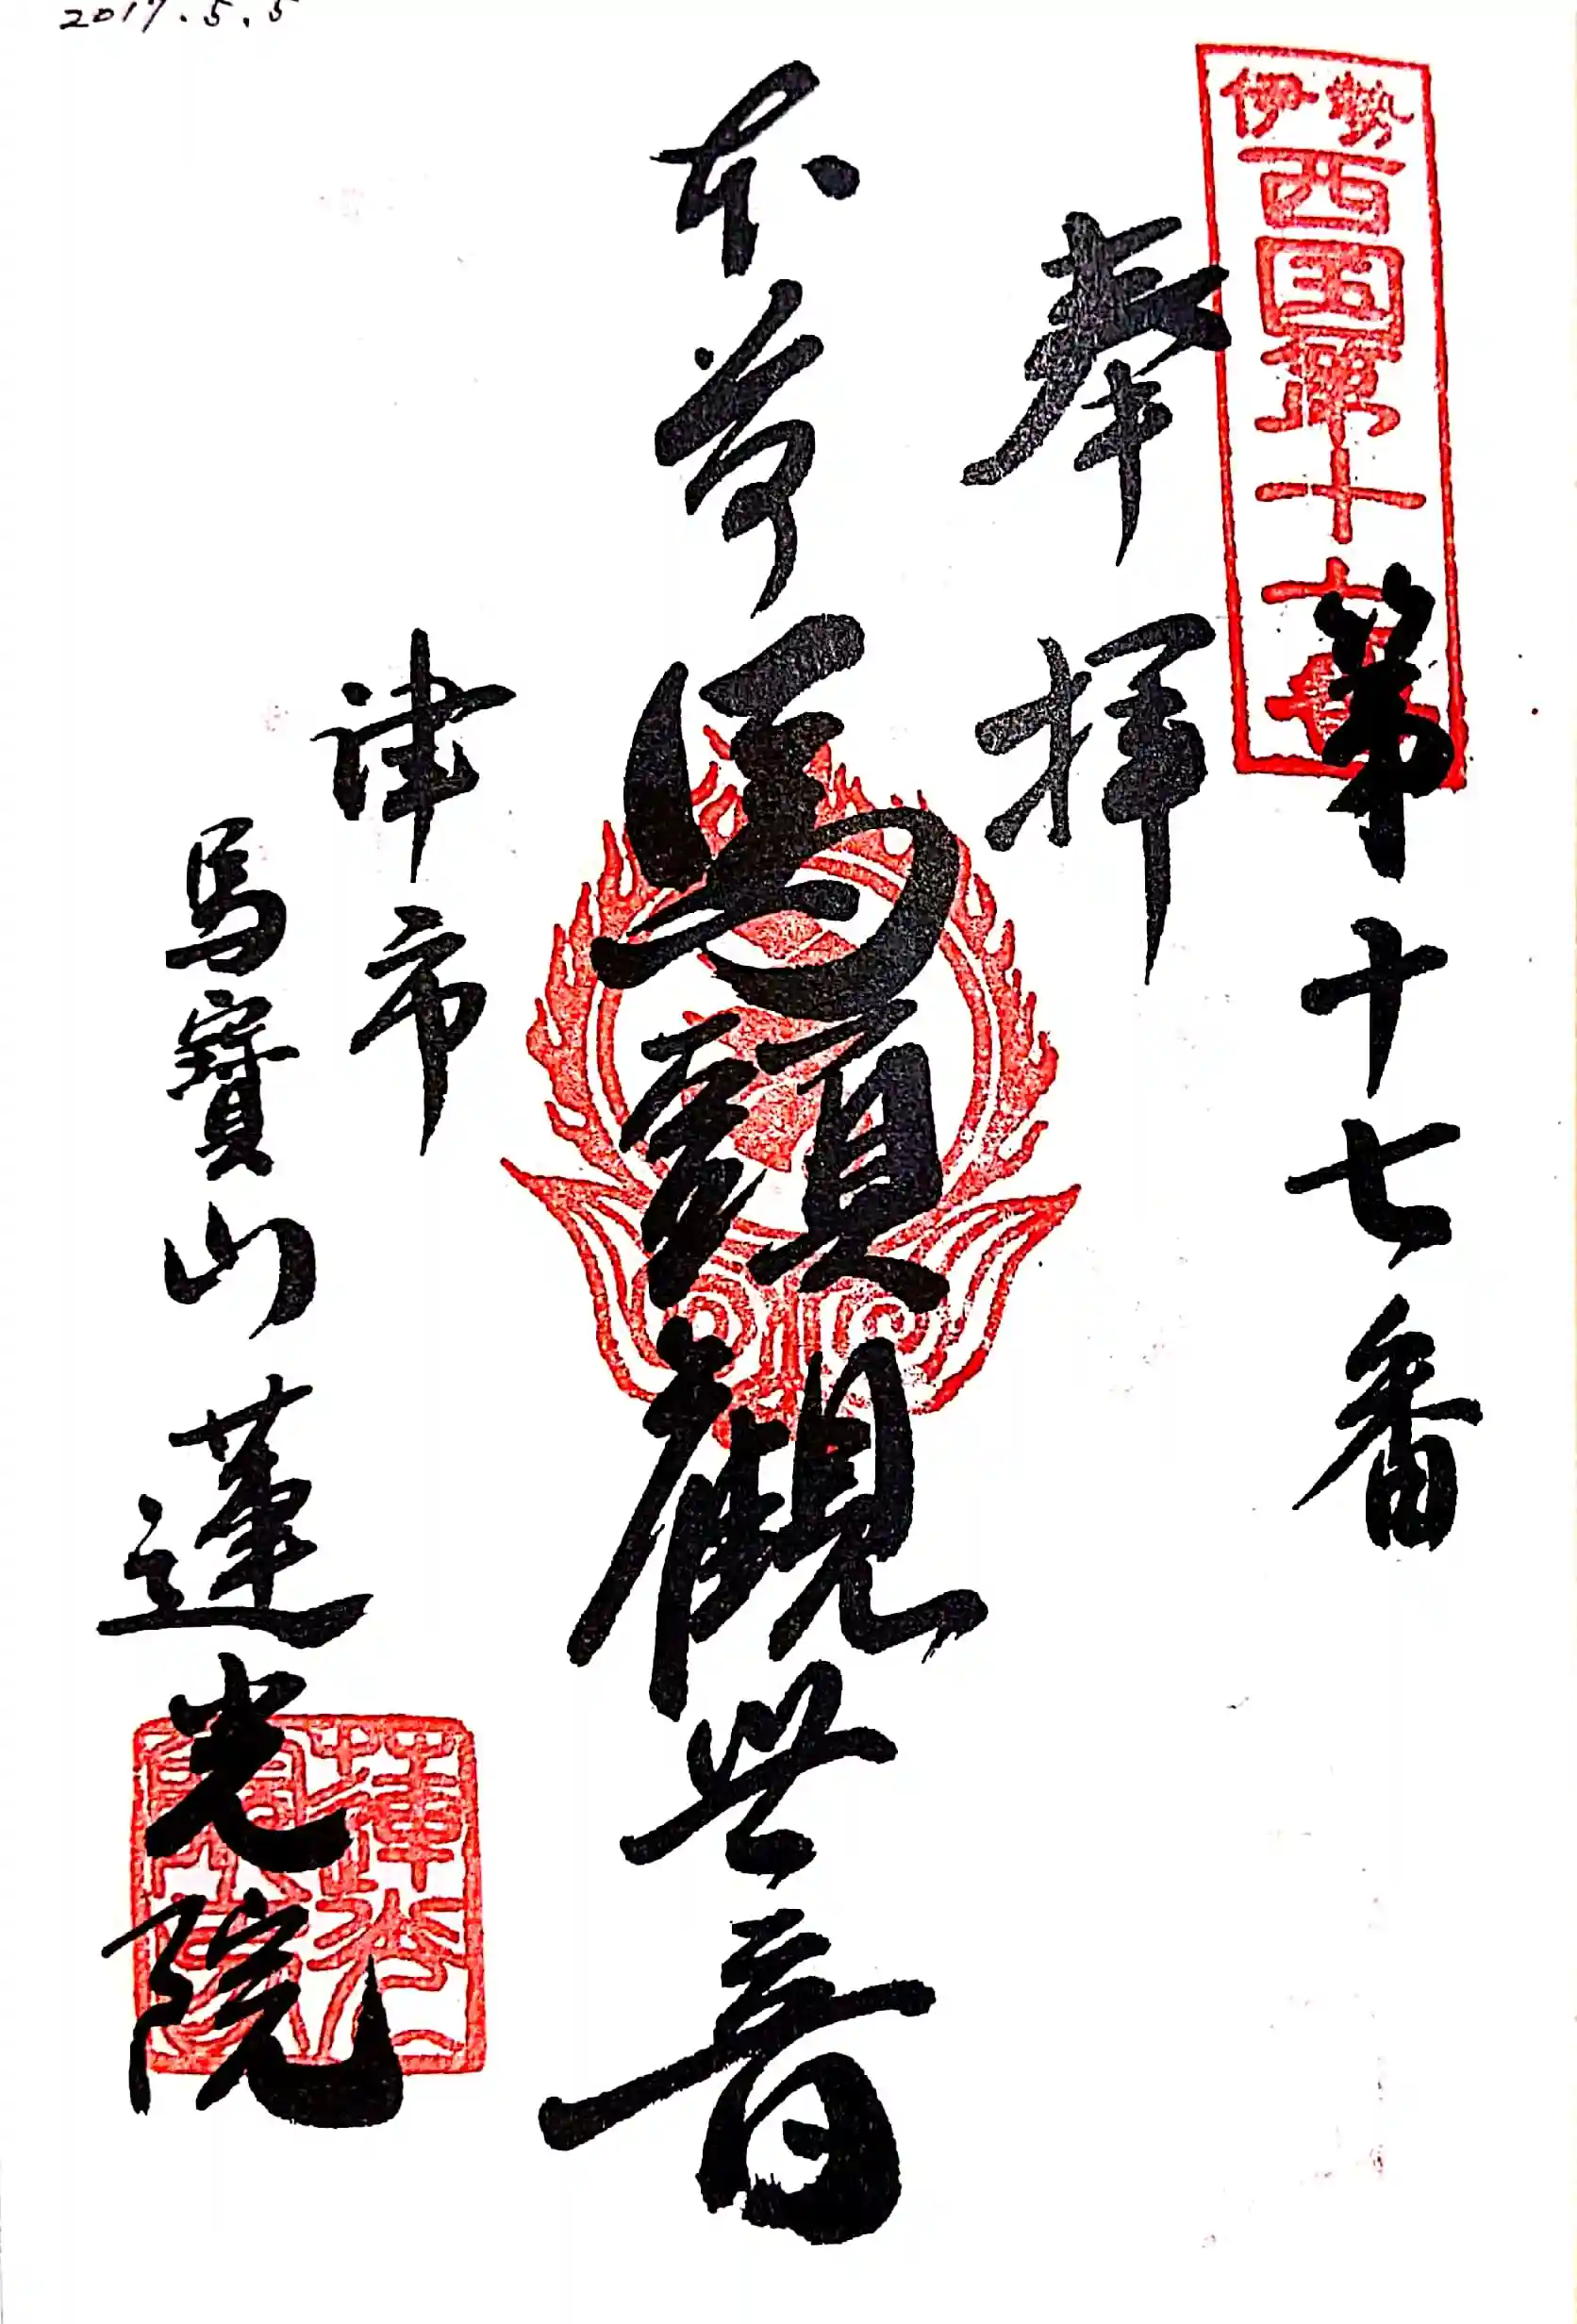 2017.5.5
伊勢
西国第十七番
第十七番
奉拝
本尊
馬頭觀世音
津市
馬寶山蓮光院